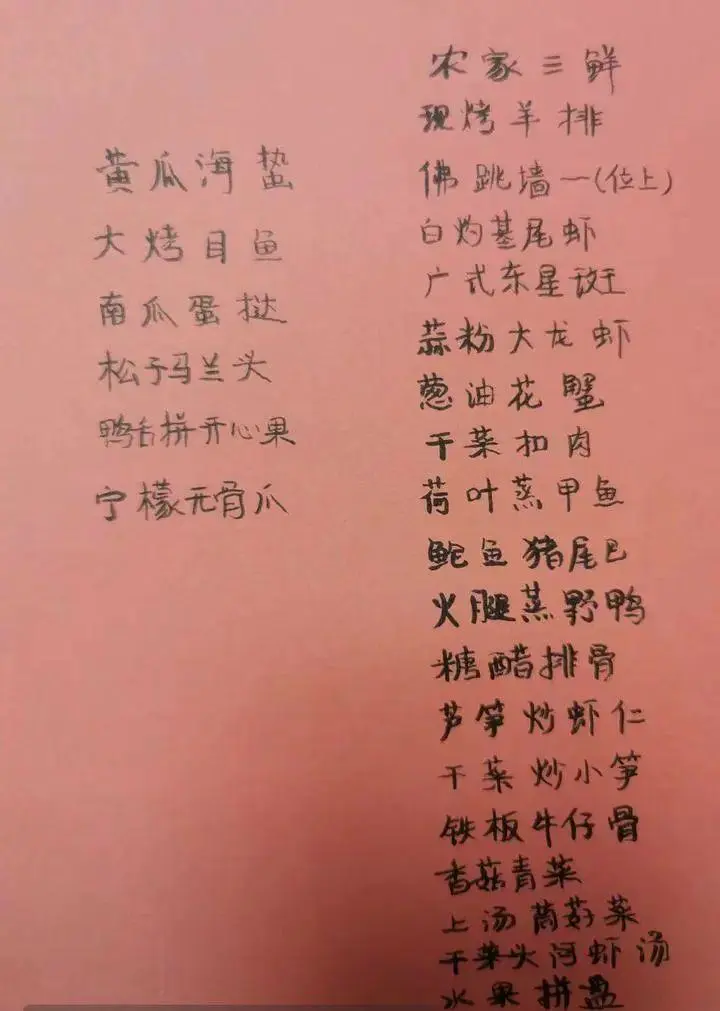 黄瓜海蜇
大烤目鱼
南瓜蛋挞
松子马兰头
鸭舌拼开心果
宁檬无骨爪
农家三鲜
现烤羊排
佛跳墙一(位上)
白灼基尾虾
广式东星斑
蒜粉大龙虾
葱油花蟹
干菜扣肉
荷叶蒸甲鱼
鮀鱼猪尾巴
火腿蒸野鸭
糖醋排骨
芦笋炒虾仁
干菜炒小笋
铁板牛仔骨
香菇青菜
上汤茼蒿菜
干菜头河虾汤
水果拼盘